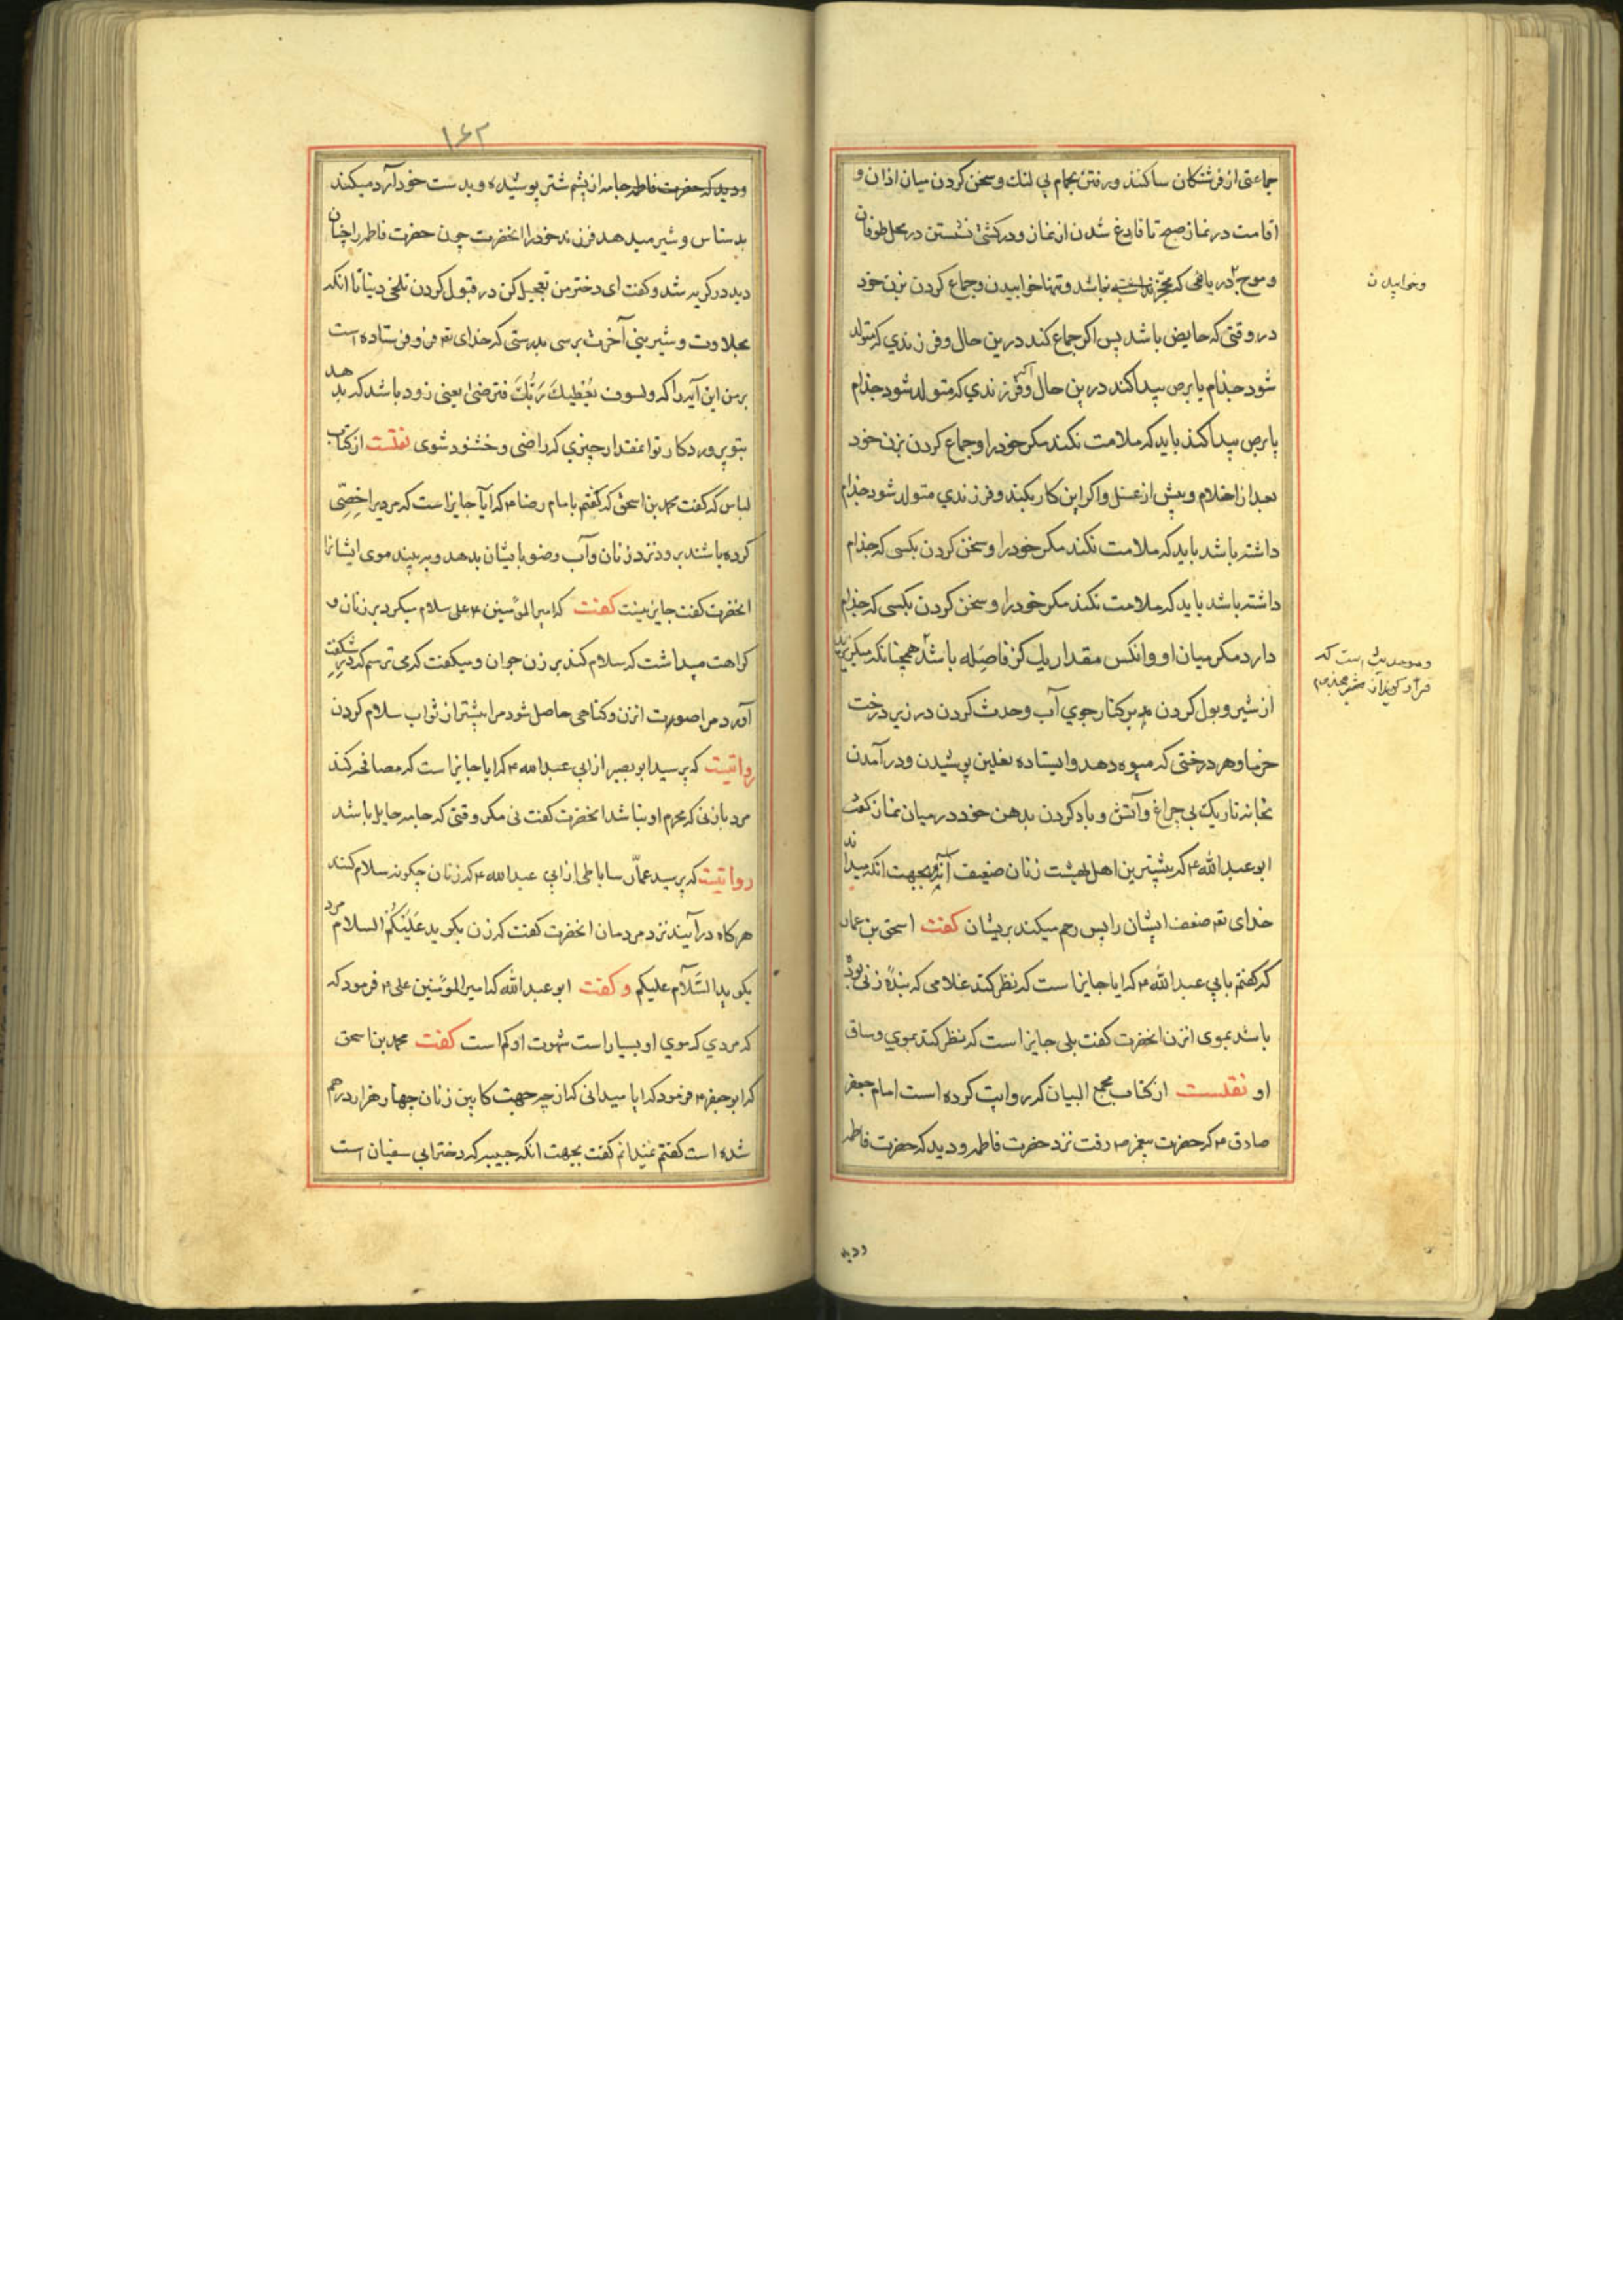 جماعتی از فرشتکان ساکنند و رفتن بحمام بی لنك و سخن کردن میان اذان و
اقامت در نماز صبح تا فارغ شدن از نماز و در کشتی نشستن در محل طوفان
و موج دریائی که نباشد و تنها خوابیدن و جماع کردن بزن خود
وخوابیدن
در وقتی که حایض باشد پس اکر جماع کند درین حال و فرزندي که متولد
شود جذام یا برص پیدا کند درین حال و فرزندي که متولد شود جذام
یا برص پیدا کند باید که ملامت نکند مکر خود را و جماع کردن بزن خود
بعد از احتلام و پیش از غسل و اکر این کار بکند و فرزندي متولد شود جذام
داشته باشد باید که ملامت نکند مکر خود را و سخن کردن بکسی که جذام
داشته باشد باید که ملامت نکند مکر خود را و سخن کردن بکسی که جذام
دارد مکر میان او و انکس مقدار یك کز فاصله باشد همچنانکه میکریزید
و در حدیث است که
فرار کنید از مجذوم
از شیر و بول کردن بر کنار جوي آب و حدث کردن در زیر درخت
خرما و هر درختی که میوه دهد و ایستاده نعلین پوشیدن و در آمدن
بخانه تاریك بی چراغ و آتش و باد کردن بدهن خود در میان نماز کفت
ابو عبد الله ع که بیشترین اهل بهشت زنان ضعیف اند بجهت انکه میداند
خدای تع ضعف ایشان را پس رحم میکند بریشان کفت اسحق بن عمار
که کفتم بابي عبد الله ع که ایا جایز است که نظر کند غلامی که بندهٔ زنی بود
باشد بموی انزن انحضرت کفت بلی جایز است که نظر کند بموي و ساق
او نقلست از کتاب مجمع البیان که روایت کرده است امام جعفر
صادق ع که حضرت پیغمبر ص رفت نزد حضرت فاطمه و دید که حضرت فاطمه
ودید
۱۶۲
و دید که حضرت فاطمه جامه از پشم شتر پوشیده و بدست خود آرد میکند
بدستاس و شیر میدهد فرزند خود را انحضرت چون حضرت فاطمه را چنان
دید در کریه شد و کفت ای دختر من تعجیل کن در قبول کردن تلخی دنیا تا انکه
بحلاوت و شیرینی آخرت برسی بدرستی که خدای تع فرو فرستاده است
بر من این آیه را که ولسوف یعطیك ربك فترضی یعنی زود باشد که بدهد
بتو پروردکار تو انمقدار چیزي که راضی و خشنود شوی نقلست از کتاب
لباس که کفت محمد بن اسحق که کفتم بامام رضا ع که ایا جایز است که مردیرا خصی
کرده باشند برود نزد زنان و آب وضو بایشان بدهد و به بیند موی ایشانرا
انحضرت کفت جایز نیست کفت که امیر المؤمنین ع علی سلام میکرد بر زنان و
کراهت میداشت که سلام کند بر زن جوان و میکفت که می ترسم که در شکفت
آورد مرا صورت انزن و کناهی حاصل شود مرا بیشتر از ثواب سلام کردن
روایتیست که پرسید ابو بصیر از ابي عبد الله ع که ایا جایز است که مصافحه کند
مرد بازنی که محرم او نباشد انحضرت کفت نی مکر وقتی که جامه حایل باشد
روایتیست که پرسید عمار ساباطی از ابي عبد الله ع که زنان چکونه سلام کنند
هرکاه در آیند نزد مردمان انحضرت کفت که زن بکوید علیکم السلام مرد
بکوید السلام علیکم و کفت ابو عبد الله که امیر المؤمنین علی ع فرمود که
که مردي که موي او بسیار است شهوت او کم است کفت محمد بن اسحق
که ابو جعفر ع فرمود که ایا میدانی که از چه جهت کابین زنان چهار هزار درهم
شده است کفتم نمیدانم کفت بجهت انکه حبیبه که دختر ابی سفیان است